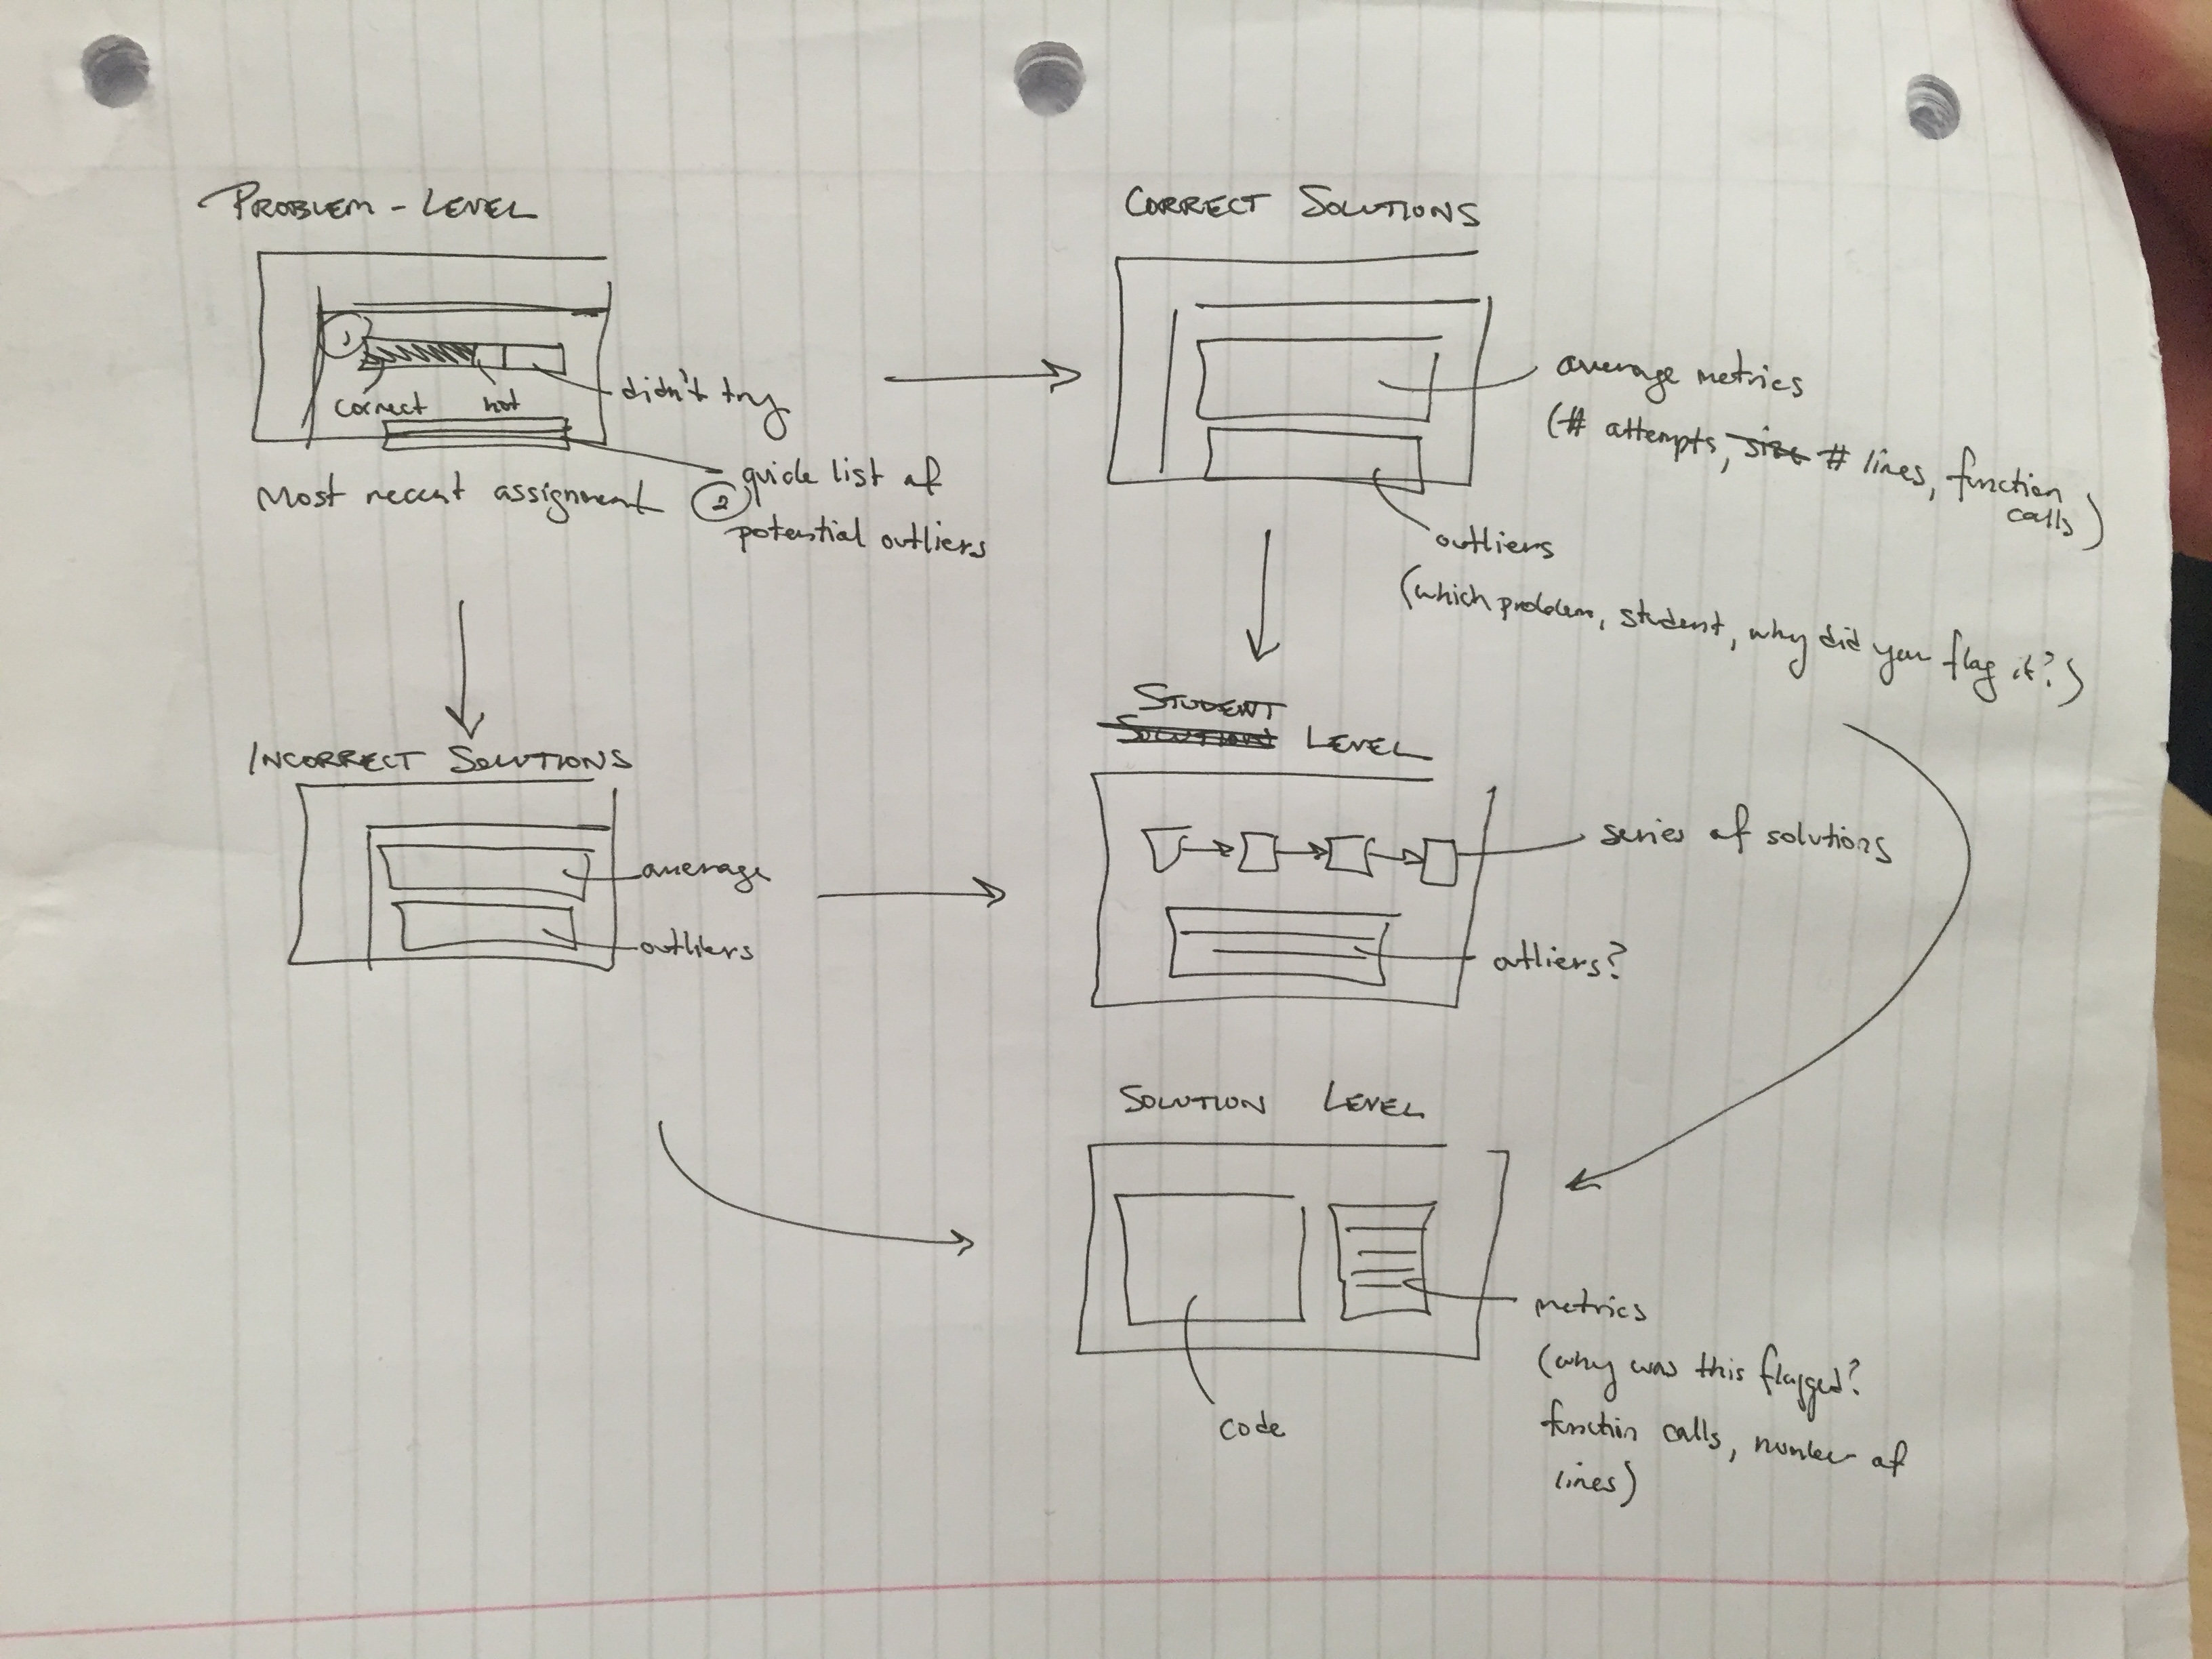 PROBLEM - LEVEL
1
correct not
didn't try
Most recent assignment
2 quick list of
potential outliers
CORRECT SOLUTIONS
average metrics
(# attempts, size # lines, function
calls)
outliers
(which problem, student, why did you flag it?)
INCORRECT SOLUTIONS
average
outliers
STUDENT
SOLUTION LEVEL
series of solutions
outliers?
SOLUTION LEVEL
code
metrics
(why was this flagged?
function calls, number of
lines)